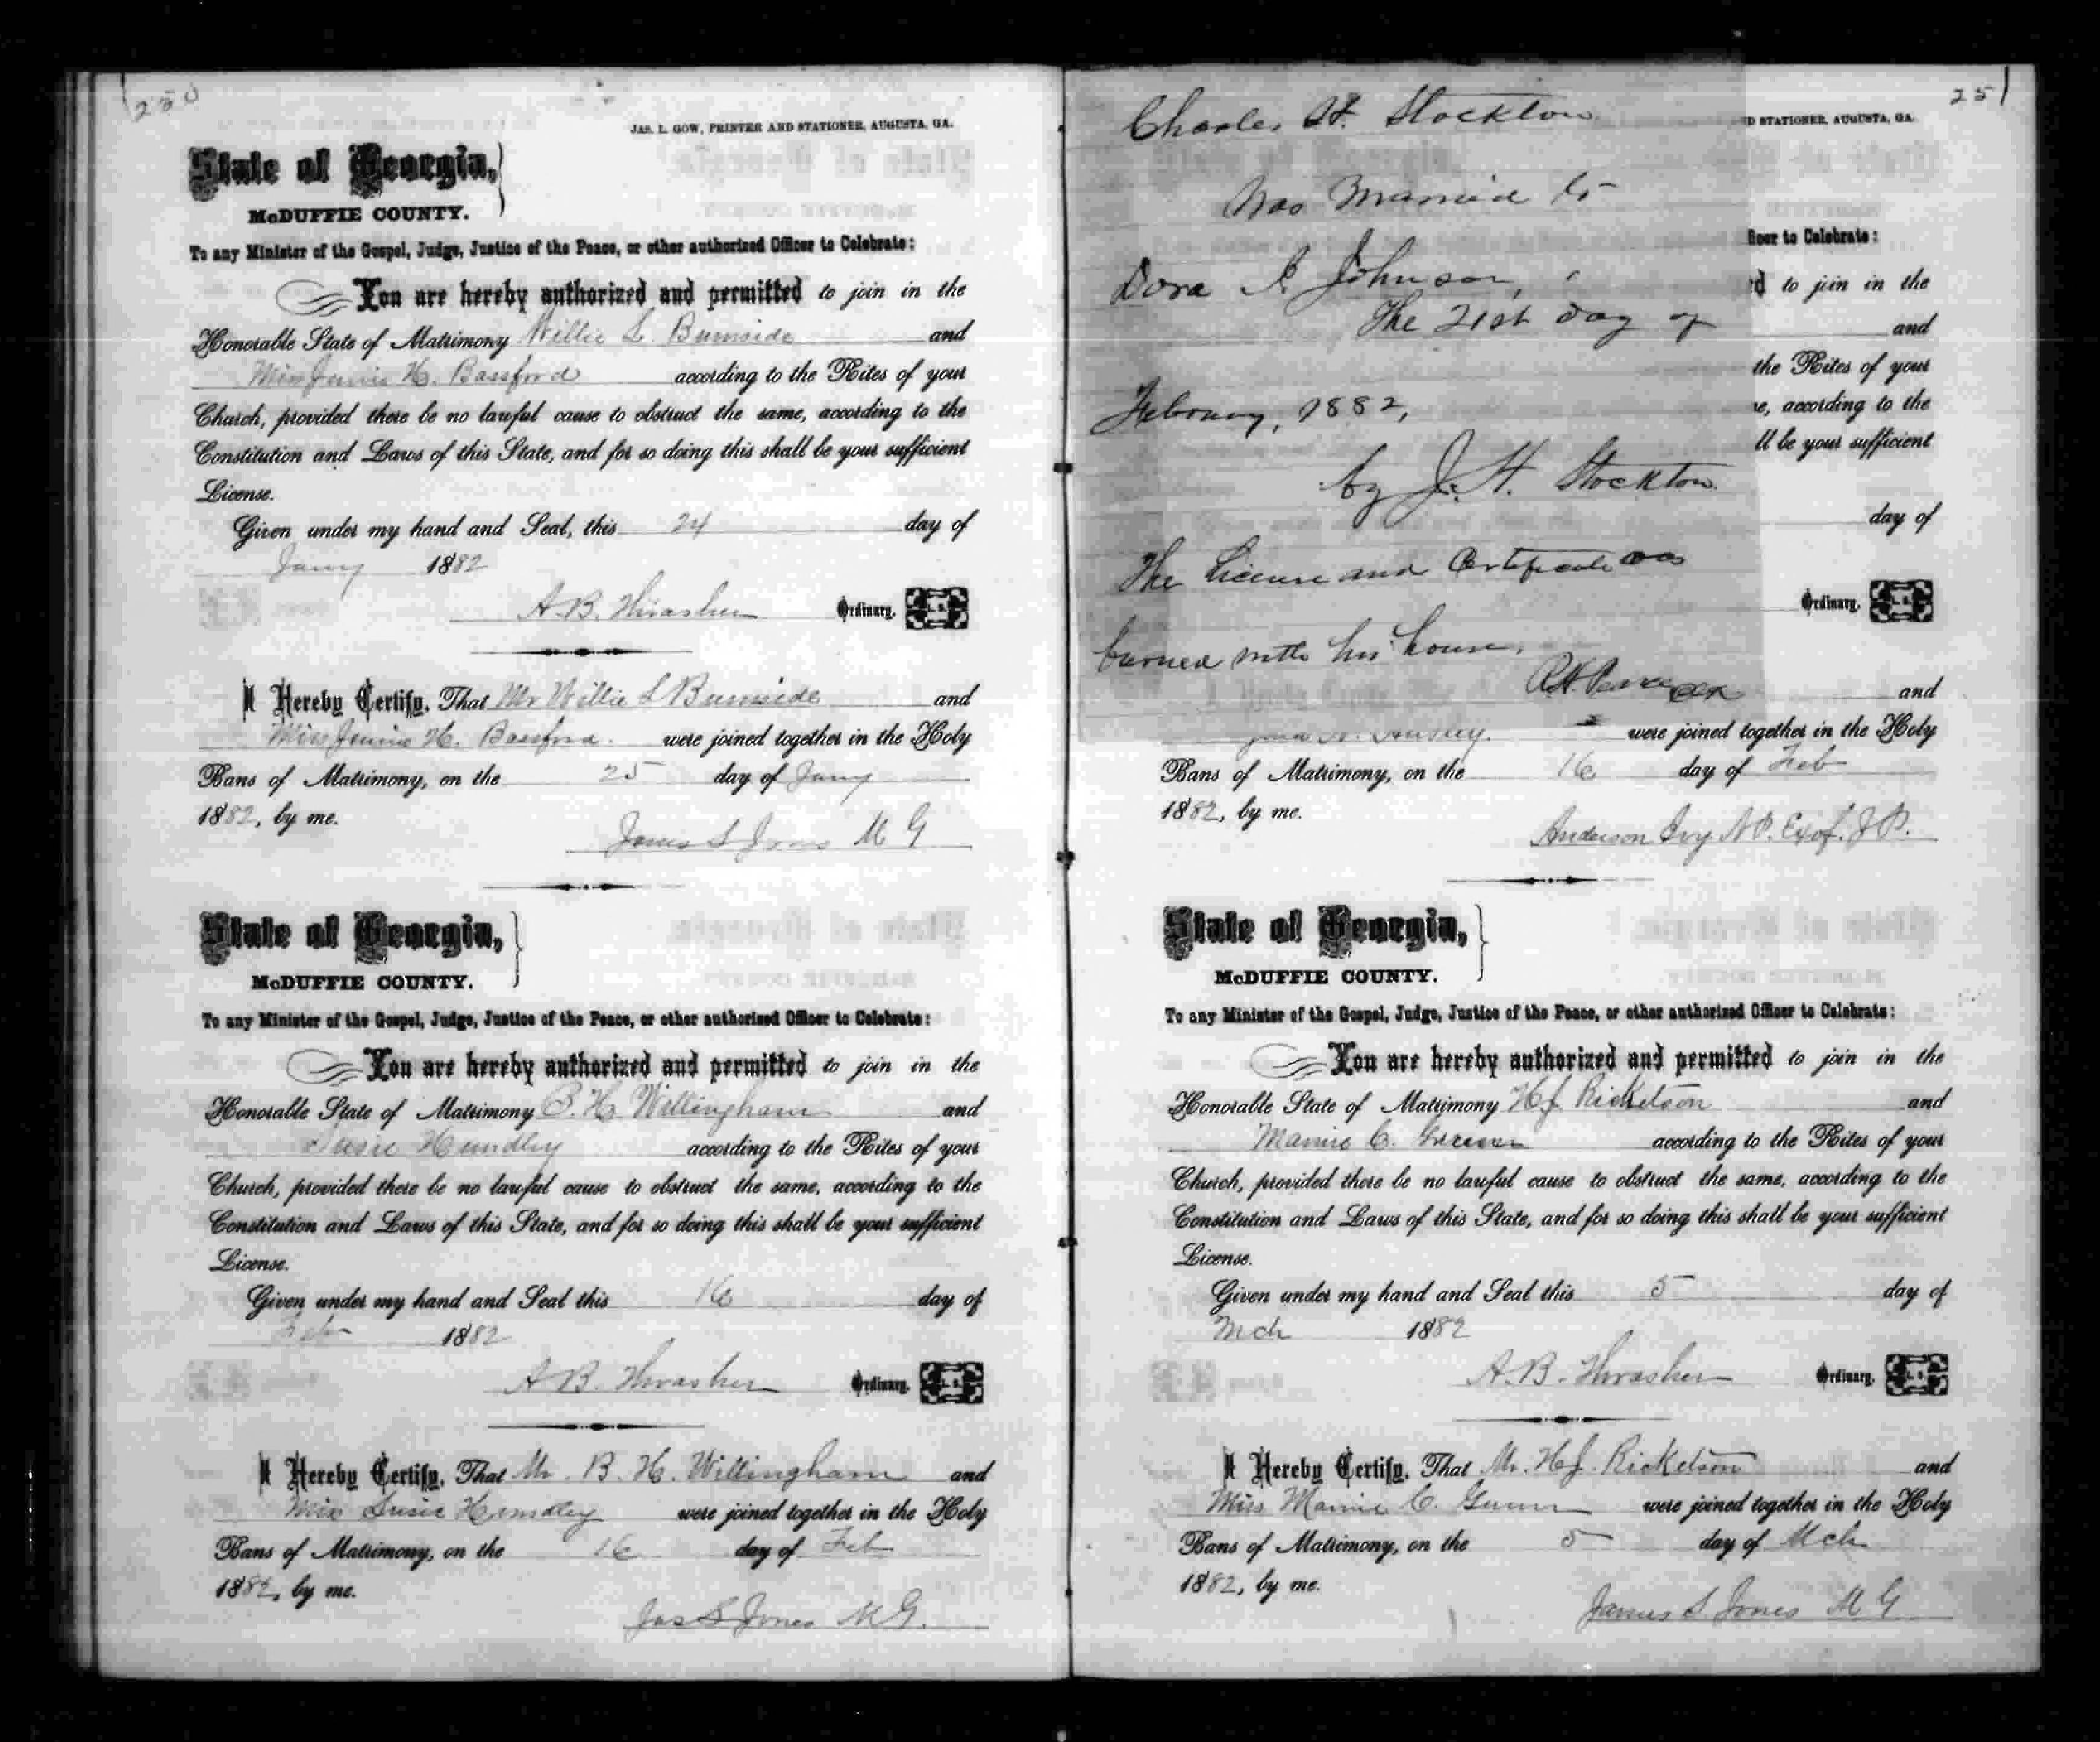 250
JAS. L. GOW, PRINTER AND STATIONER, AUGUSTA, GA.
State of Georgia,
McDUFFIE COUNTY.
To any Minister of the Gospel, Judge, Justice of the Peace, or other authorized Officer to Celebrate:
You are hereby authorized and permitted to join in the
Honorable State of Matrimony Willie L. Burnside and
Miss Jennie H. Bassford according to the Rites of your
Church, provided there be no lawful cause to obstruct the same, according to the
Constitution and Laws of this State, and for so doing this shall be your sufficient
License.
Given under my hand and Seal, this 24 day of
Jany 1882
A. B. Thrasher Ordinary. L. S.
I Hereby Certify, That Mr Willie L Burnside and
Miss Jennie H. Bassford. were joined together in the Holy
Bans of Matrimony, on the 25 day of Jany
1882, by me.
James S Jones M G
State of Georgia,
McDUFFIE COUNTY.
To any Minister of the Gospel, Judge, Justice of the Peace, or other authorized Officer to Celebrate:
You are hereby authorized and permitted to join in the
Honorable State of Matrimony B. H. Willingham and
Susie Hundley according to the Rites of your
Church, provided there be no lawful cause to obstruct the same, according to the
Constitution and Laws of this State, and for so doing this shall be your sufficient
License.
Given under my hand and Seal this 16 day of
Feb 1882
A. B. Thrasher Ordinary. L. S.
I Hereby Certify, That Mr. B. H. Willingham and
Miss Susie Hundley were joined together in the Holy
Bans of Matrimony, on the 16 day of Feb
1882, by me.
Jas S Jones M G.
251
Charles H. Stockton
was Married to
Dora I. Johnson,
The 21st day of
February, 1882,
by J. H. Stockton.
The License and Certificate was
burned with his house.
D STATIONER, AUGUSTA, GA.
ficer to Celebrate:
ed to join in the
and
the Rites of your
e, according to the
ll be your sufficient
day of
Ordinary. L. S.
and
were joined together in the Holy
Bans of Matrimony, on the 16 day of Feb
1882, by me.
Anderson Ivy N P. Ex of. J P.
State of Georgia,
McDUFFIE COUNTY.
To any Minister of the Gospel, Judge, Justice of the Peace, or other authorized Officer to Celebrate:
You are hereby authorized and permitted to join in the
Honorable State of Matrimony H J. Ricketson and
Mamie C. according to the Rites of your
Church, provided there be no lawful cause to obstruct the same, according to the
Constitution and Laws of this State, and for so doing this shall be your sufficient
License.
Given under my hand and Seal this 5 day of
Mch 1882
A. B. Thrasher Ordinary. L. S.
I Hereby Certify, That Mr. H J. Ricketson and
Miss Mamie C. were joined together in the Holy
Bans of Matrimony, on the 5 day of Mch
1882, by me.
James S. Jones M G